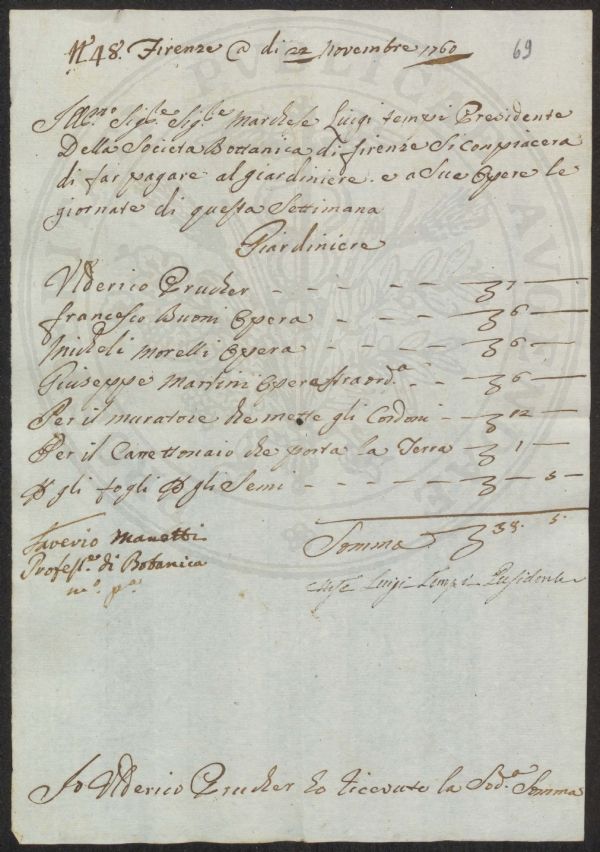 N.º 48. Firenze @ di 22 Novembre 1760
69
Ill.mo Sig.re Sig.re Marchese Luigi Tempi Presidente
Della Società Bottanica di firenze Si conpiacera
di far pagare al giardiniere e a Sue Opere le
giornate di questa Settimana
Giardiniere
Vlderico Prucher - - - - - £ 7 —
francesco Buoni Opera - - - - £ 6 —
Micheli Morelli Opera - - - - £ 6 —
Giuseppe Martini Opera straord.a - - £ 6 —
Per il muratore che mette gli Cordoni - £ 12 —
Per il Carrettonaio che porta la Terra - £ 1 —
P gli fogli P gli Semi - - - - - £ — 5 —
Saverio Manetti
Profess.re di Botanica
m.o p.a
Somma £ 38. 5.
Luigi Tempi Presidente
Io Vlderico Prucher ho ricevuto la Sod.a Somma
PVBLICA